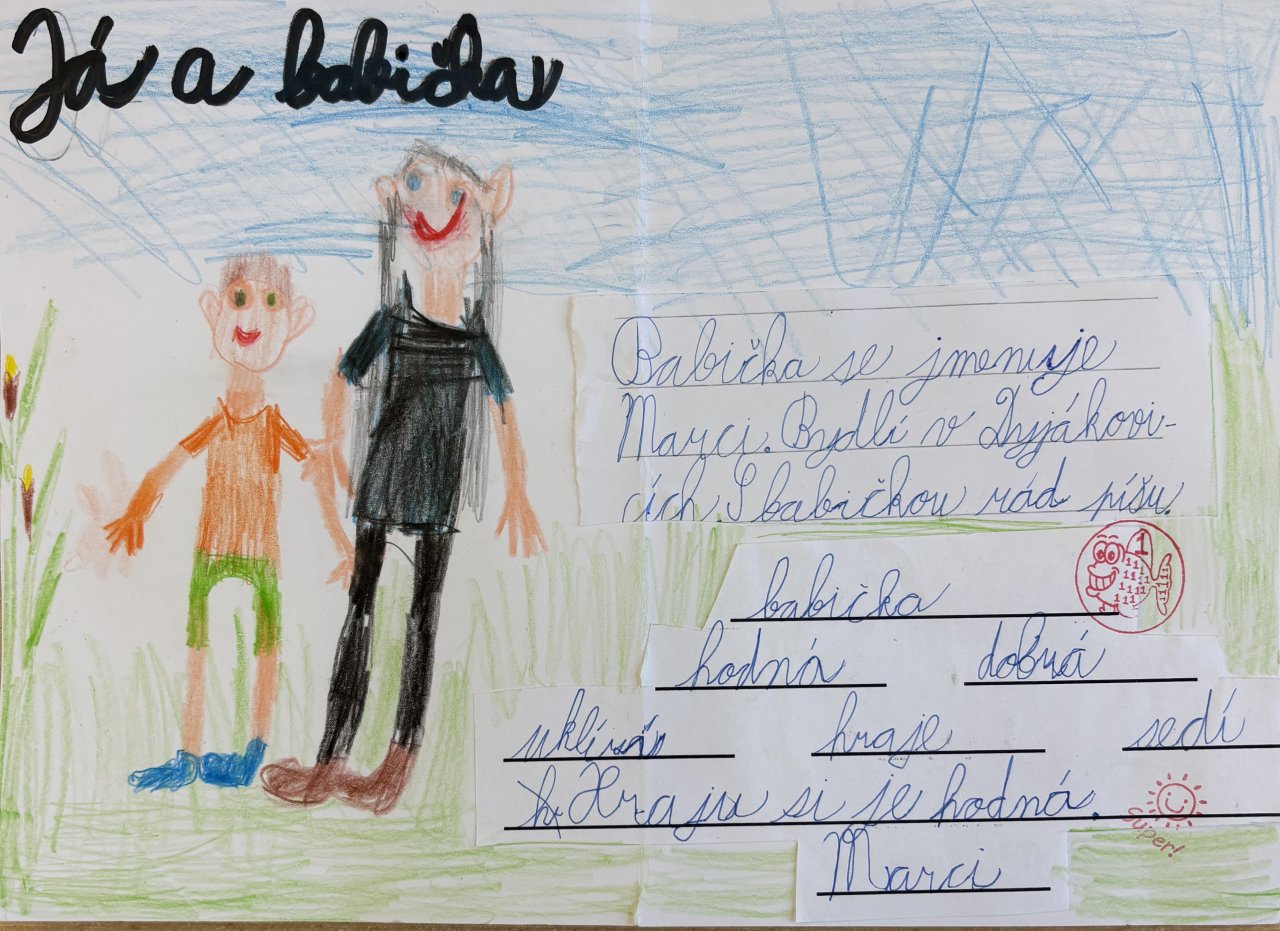 Já a babička
Babička se jmenuje
Marci. Bydlí v Dyjákovi-
cích. S babičkou rád píšu.
babička
hodná dobrá
hraje sedí
Hraju si je hodná.
Super!
Marci